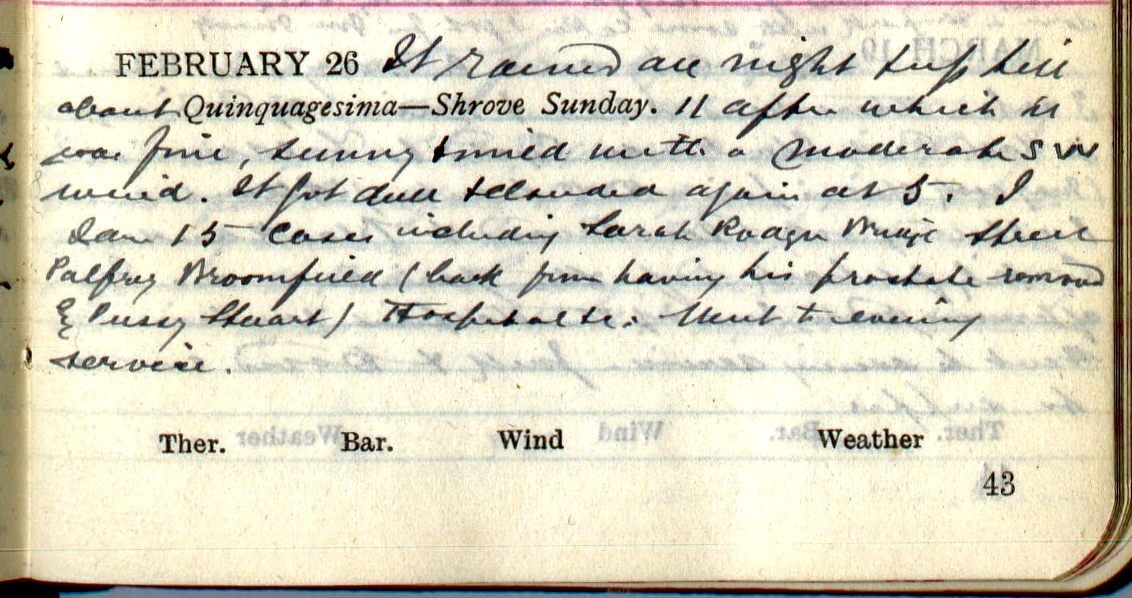 FEBRUARY 26 It rained all night & up till
about Quinquagesima—Shrove Sunday. 11 after which it
was fine, sunny & mild with a moderate S W
wind. It got dull & clouded again at 5. I
saw 15 cases including Sarah Bridge Street
Palfrey Broomfield (back from having his prostate removed
Pussy Stuart) Hospital etc. Went to evening
service.
Ther. Bar. Wind Weather
43